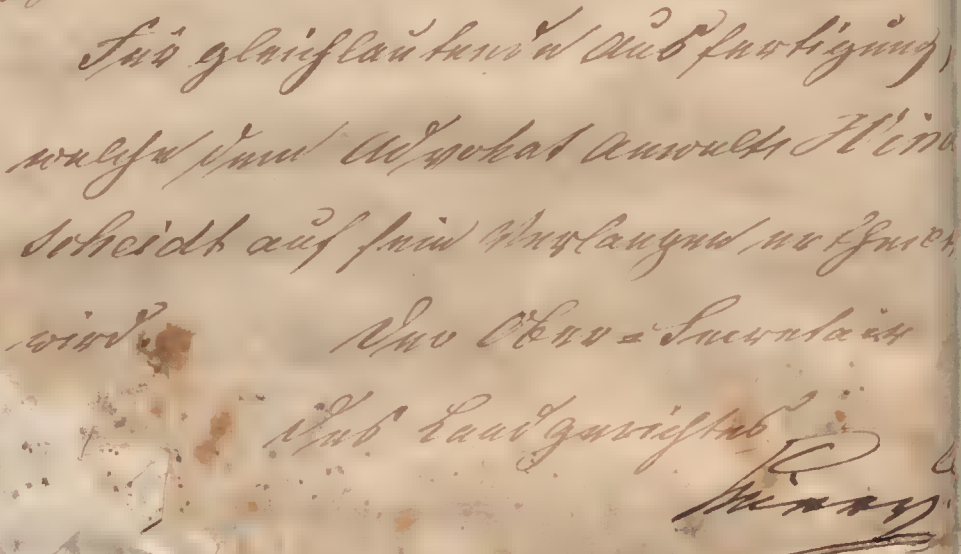 Für gleichlautende Ausfertigung,
welche dem Advokat Anwalte Wind
scheidt auf sein Verlangen ertheilt
wird.
Der Ober=Secretair
des Landgerichtes